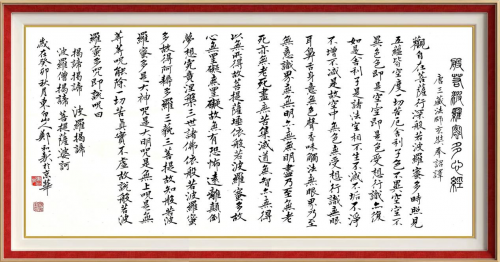 般若波羅蜜多心經
唐三藏法師玄奘奉詔譯
觀自在菩薩行深般若波羅蜜多時照見
五蘊皆空度一切苦厄舍利子色不異空空不
異色色即是空空即是色受想行識亦復
如是舍利子是諸法空相不生不滅不垢不淨
不增不減是故空中無色無受想行識無眼
耳鼻舌身意無色聲香味觸法無眼界乃至
無意識界無無明亦無無明盡乃至無老
死亦無老死盡無苦集滅道無智亦無得
以無所得故菩提薩埵依般若波羅蜜多故
心無罣礙無罣礙故無有恐怖遠離顛倒
夢想究竟涅槃三世諸佛依般若波羅蜜
多故得阿耨多羅三藐三菩提故知般若波
羅蜜多是大神咒是大明咒是無上咒是無
等等咒能除一切苦真實不虛故說般若波
羅蜜多咒即說咒曰
揭諦揭諦 波羅揭諦
波羅僧揭諦 菩提薩婆訶
歲在癸卯秋月東人鄭敬於京華